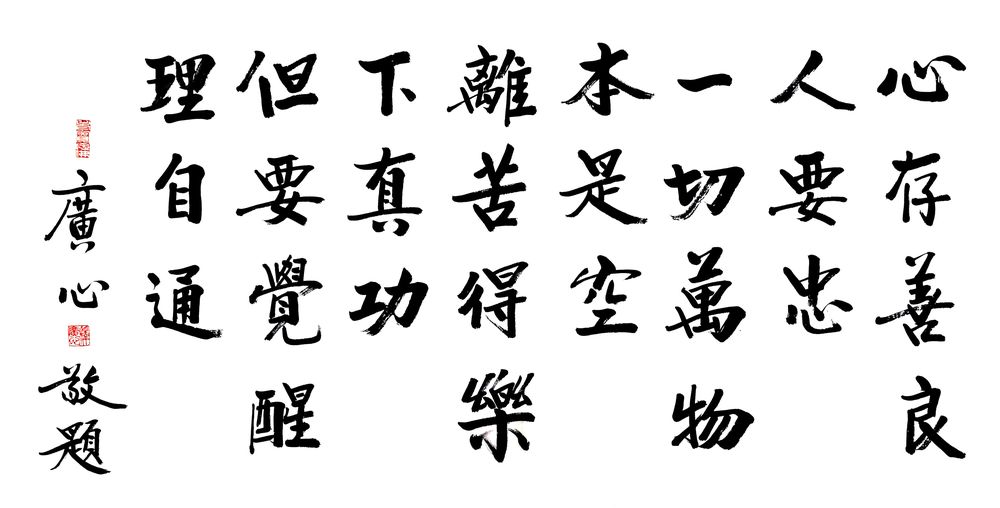 心存善良
人要忠
一切萬物
本是空
離苦得樂
下真功
但要覺醒
理自通
廣心敬題